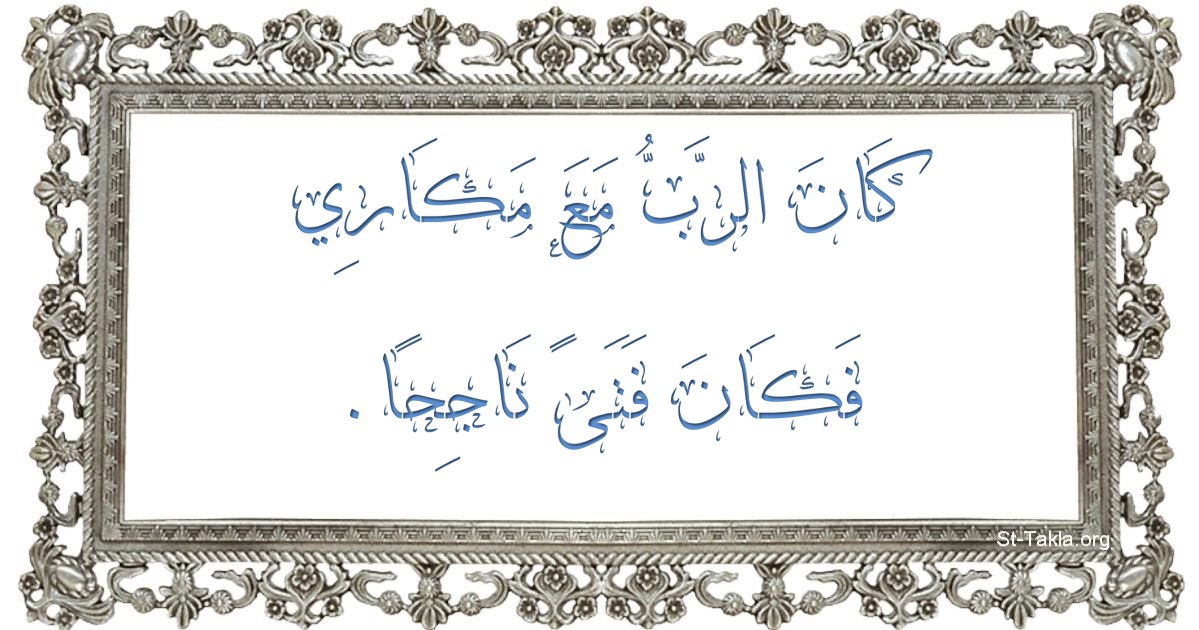 كَانَ الرَّبُّ مَعَ مَكَارِي
فَكَانَ فَتَىً نَاجِحًا.
St-Takla.org